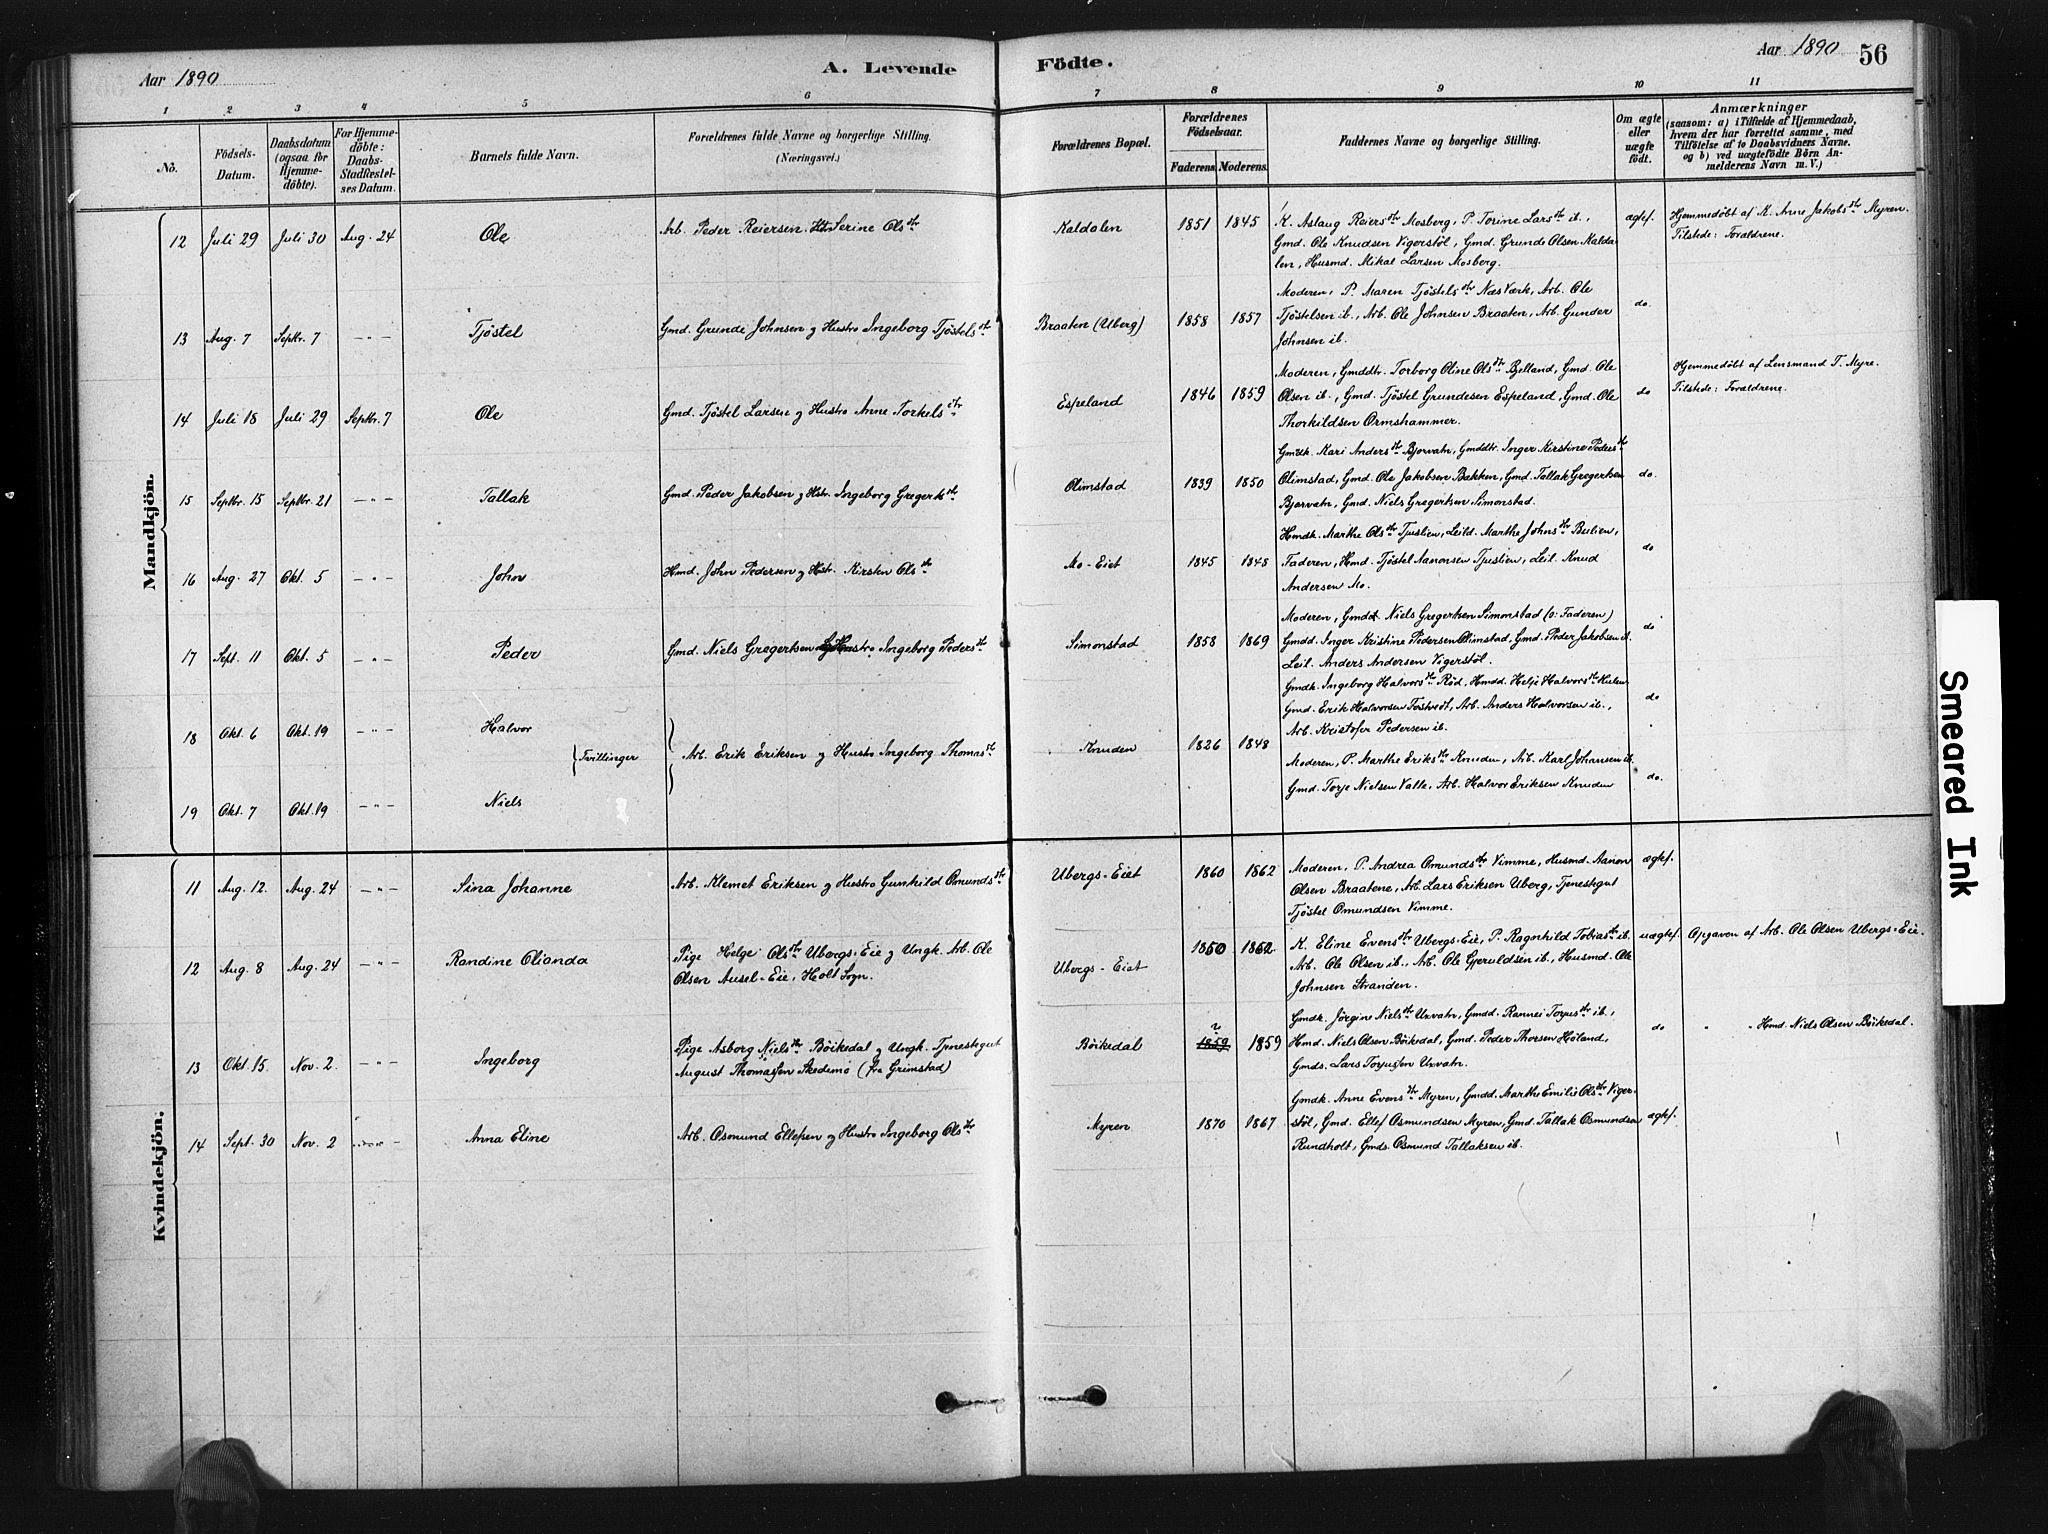 Aar 1890
A. Levende Födte.
Aar 1890 56
1 2 3 4 5 6 7 8 9 10 11
No.
Födsels-Datum.
Daabsdatum (ogsaa for Hjemme-döbte).
For Hjemme-döbte: Daabs-Stadfæstel-ses Datum.
Barnets fulde Navn.
Forældrenes fulde Navne og borgerlige Stilling. (Næringsvei.)
Forældrenes Bopæl.
Forældrenes Födselsaar.
Faderens. Moderens.
Faddernes Navne og borgerlige Stilling.
Om ægte eller uægte födt.
Anmærkninger
(saasom: a) i Tilfælde af Hjemmedaab,
hvem der har forrettet samme, med
Tilföielse af to Daabsvidners Navne.
og b) ved uægtefödte Börn An-
melderens Navn m. V.)
Mandkjön.
12 Juli 29 Juli 30 Aug. 24 Ole Arb. Peder Reiersen Serine Olsdtr Kaldalen 1851 1845
K. Aslaug Reiersdtr Mosberg, P. Torine Larsdtr ib.,
Gmd. Ole Knudsen Vigerstøl, Gmd. Grunde Olsen Kalda-
len, Husmd. Mikal Larsen Mosberg.
ægtef.
Hjemmedöbt af K. Anne Jakobsdtr Myren.
Tilstede: Forældrene.
13 Aug. 7 Septbr. 7 – " – Tjöstel Gmd. Grunde Johnsen og Hustro Ingeborg Tjöstelsdtr Braaten (Uberg) 1858 1857
Moderen, P. Maren Tjöstelsdtr Næs Værk, Arb. Ole
Tjöstelsen ib., Arb. Ole Johnsen Braaten, Arb. Gunder
Johnsen ib.
do.
14 Juli 18 Juli 29 Septbr. 7 Ole Gmd. Tjöstel Larsen og Hustro Anne Torkelsdtr Espeland 1846 1859
Moderen, Gmddtr. Torborg Oline Olsdtr Bjelland, Gmd. Ole
Olsen ib., Gmd. Tjöstel Grundesen Espeland, Gmd. Ole
Thorkildsen Ormshammer.
do
Hjemmedöbt af Lensmand T. Myre.
Tilstede: Forældrene.
15 Septbr. 15 Septbr. 21 – " – Tallak Gmd. Peder Jakobsen og Hstr. Ingeborg Gregertsdtr Olimstad 1839 1850
Gmdk. Kari Andersdtr Bjorvatn, Gmddtr. Inger Kirstine Pedersdtr
Olimstad, Gmd. Ole Jakobsen Bakken, Gmd. Tallak Gregertsen
Bjorvatn, Gmd. Niels Gregertsen Simonstad.
do.
16 Aug. 27 Okt. 5 – " – John Hmd. John Pedersen og Hstr. Kirsten Olsdtr Mo-Eiet 1845 1848
Hmdk. Marthe Olsdtr Tjuslien, Leild. Marthe Johnsdtr Bulien,
Faderen, Hmd. Tjöstel Aanonsen Tjuslien, Leil. Knud
Andersen Mo.
do
17 Sept. 11 Okt. 5 – " – Peder Gmd. Niels Gregertsen og Hustro Ingeborg Pedersdtr Simonstad 1858 1869
Moderen, Gmd. Niels Gregertsen Simonstad (ɔ: Faderen)
Gmdd. Inger Kristine Pedersen Olimstad, Gmd. Peder Jakobsen ib.
Leil. Anders Andersen Vigerstöl.
do
18 Okt. 6 Okt. 19 – " – Halvor
{Tvillinger} Arb. Erik Eriksen og Hustro Ingeborg Thomasdtr Knuden 1826 1848
Gmdk. Ingeborg Halvorsdtr Röd, Hmdd. Helje Halvorsdtr
Gmd. Erik Halvorsen Tostvedt, Arb. Anders Halvorsen ib.,
Arb. Kristofer Pedersen ib.
do
19 Okt. 7 Okt. 19 – " – Niels
Moderen, P. Marthe Eriksdtr Knuden, Arb. Karl Johansen ib.
Gmd. Torje Nielsen Valle, Arb. Halvor Eriksen Knuden
do.
Kvindekjön.
11 Aug. 12. Aug. 24 – " – Sina Johanne Arb. Klemet Eriksen og Hustro Gunhild Omundsdtr Ubergs-Eiet 1860 1862
Moderen, P. Andrea Omundsdtr Vimme, Husmd. Aanon
Olsen Braatene, Arb. Lars Eriksen Uberg, Tjenestegut
Tjöstel Omundsen Vimme.
ægtef.
12 Aug. 8 Aug. 24 – " – Randine Olianda
Pige Helge Olsdtr Ubergs-Eie og Ungk. Arb. Ole
Olsen Ausel-Eie, Holt Sogn.
Ubergs-Eiet 1850 1862.
K. Eline Evensdtr Ubergs-Eie, P. Ragnhild Tobiasdtr ib.
Arb. Ole Olsen ib., Arb. Ole Gjeruldsen ib., Husmd. Ole
Johnsen Stranden.
uægtef. Opgaven af Arb. Ole Olsen Ubergs-Eie.
13 Okt. 15. Nov. 2. – " – Ingeborg
Pige Asborg Nielsdtr Böikedal og Ungk. Tjenestegut
August Thomassen Skedemo (fra Grimstad)
Böikedal ? 1859 1859
Gmdk. Jörgine Nielsdtr Uxvatn, Gmdd. Rannei Torjusdtr ib.,
Hmd. Niels Olsen Böikedal, Gmd. Peder Thorsen Höland,
Gmds. Lars Torjussen Uxvatn.
do " " Hmd. Niels Olsen Böikedal.
14 Sept. 30 Nov. 2 Anna Eline Arb. Osmund Ellefsen og Hustro Ingeborg Olsdtr Myren 1870 1867
Gmdk. Anne Evensdtr Myren, Gmdd. Marthe Emilie Olsdtr Viger-
stöl, Gmd. Ellef Osmundsen Myren, Gmd. Tallak Osmundsen
Rundholt, Gmds. Osmund Tallaksen ib.
ægtef.
Smeared Ink